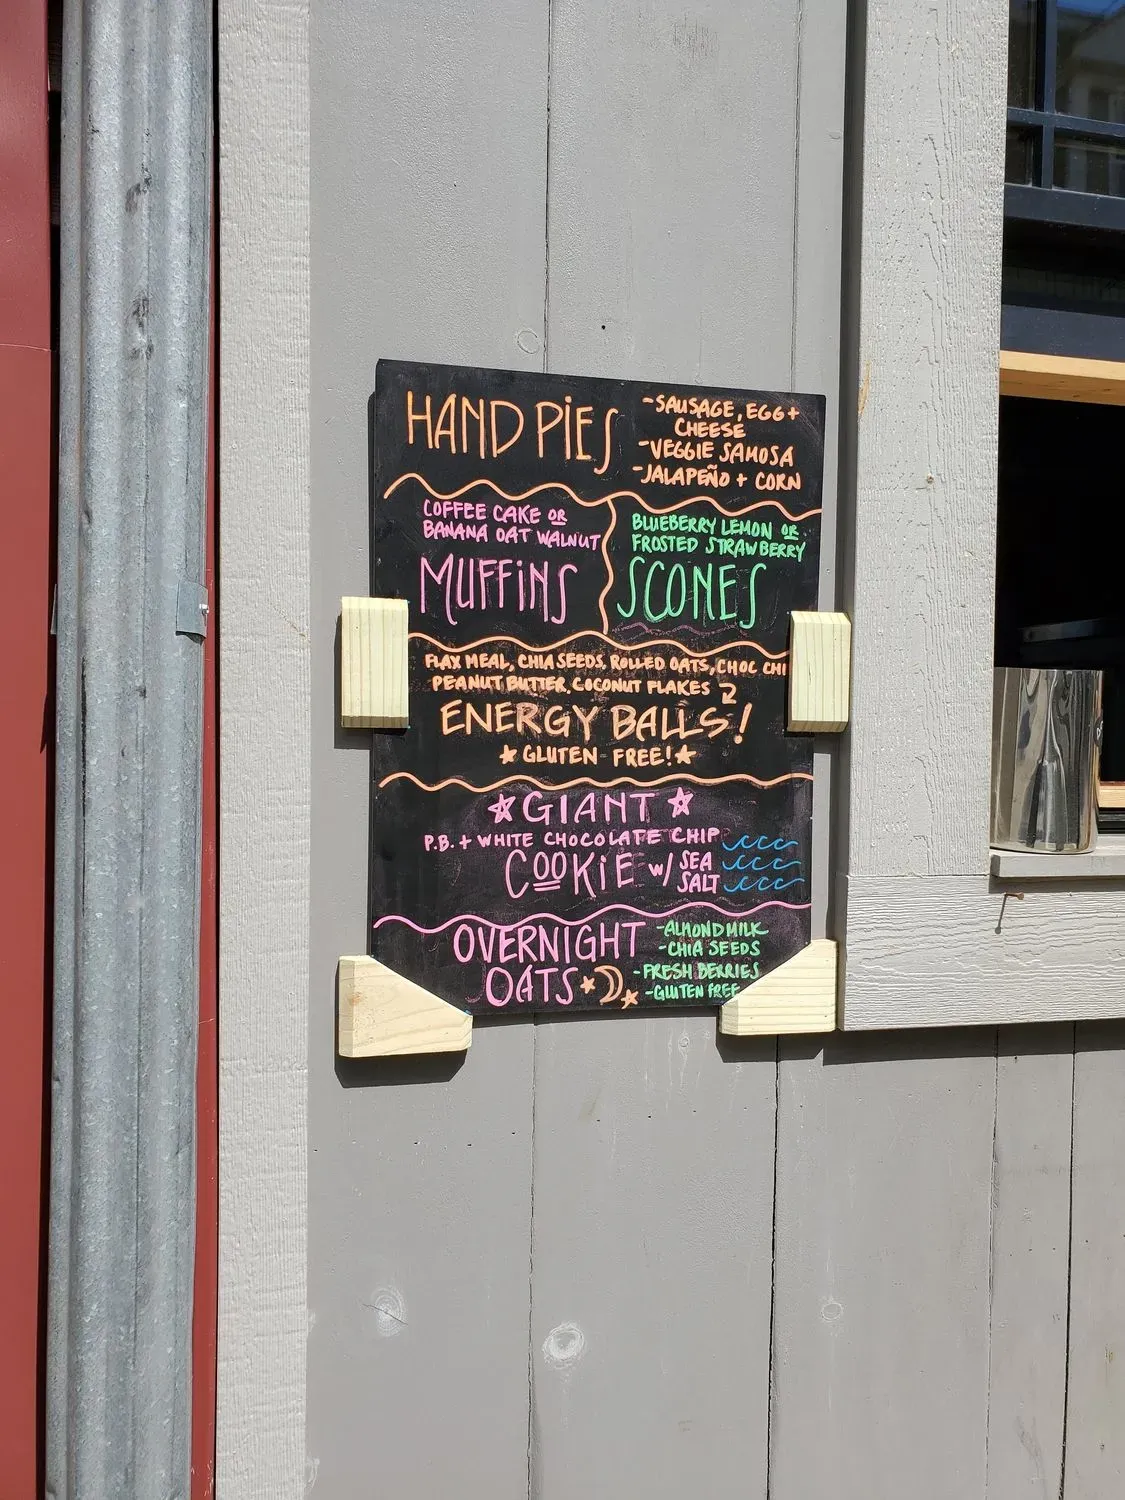 HAND PIES
-SAUSAGE, EGG +
CHEESE
-VEGGIE SAMOSA
-JALAPEÑO + CORN
COFFEE CAKE OR
BANANA OAT WALNUT
MUFFINS
BLUEBERRY LEMON OR
FROSTED STRAWBERRY
SCONES
FLAX MEAL, CHIA SEEDS, ROLLED OATS, CHOC CHI
PEANUT BUTTER, COCONUT FLAKES
ENERGY BALLS!
GLUTEN FREE!
GIANT
P.B. + WHITE CHOCOLATE CHIP
COOKIE W/ SEA
SALT
OVERNIGHT
OATS
-ALMONDMILK
-CHIA SEEDS
-FRESH BERRIES
-GLUTEN FREE